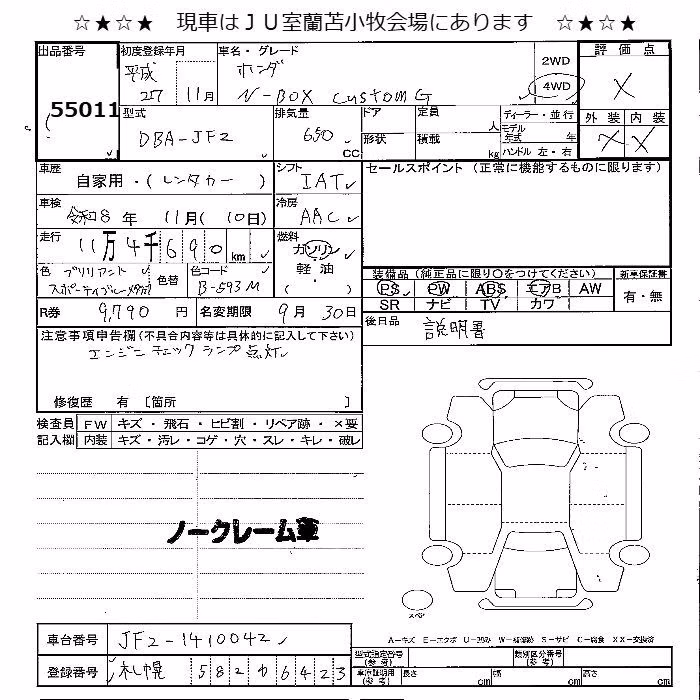 ☆★☆★ 現車はＪＵ室蘭苫小牧会場にあります ☆★☆★
出品番号 初度登録年月 車名・グレード 評価点
55011 平成 27 11月 ホンダ N-BOX customG 2WD 4WD ×
型式 排気量 ドア 定員 人 ディーラー・並行 外装 内装
DBA-JF2 650 CC 形状 積載 kg モデル年式 年 ハンドル 左・右 × ×
車歴 自家用・(レンタカー ) シフト IAT セールスポイント (正常に機能するものに限ります)
車検 令和8年 11月( 10日) 冷房 AAC
走行 11万4千690km 燃料 ガソリン 軽油 ( ・ )
色 ブリリアント スポーティブルーメタ 色替 色コード B-593M
装備品 (純正品に限り○をつけてください) 新車保証書
PS PW ABS エアB AW 有・無
SR ナビ TV カワ
R券 9,790円 名変期限 9月 30日 後日品 説明書
注意事項申告欄(不具合内容等は具体的に記入して下さい)
エンジンチェックランプ点灯
修復歴 有 〔箇所 〕
検査員 FW キズ・飛石・ヒビ割・リペア跡・×要
記入欄 内装 キズ・汚レ・コゲ・穴・スレ・キレ・破レ
ノークレーム車
スペア
A-キズ E-エクボ U-凹み W-補修跡 S-サビ C-腐食 XX-交換済
車台番号 JF2-1410042 型式指定番号(参考) 類別区分番号(参考)
登録番号 札幌 582 か 6423 車庫証明用(参考) 長さ cm 幅 cm 高さ cm